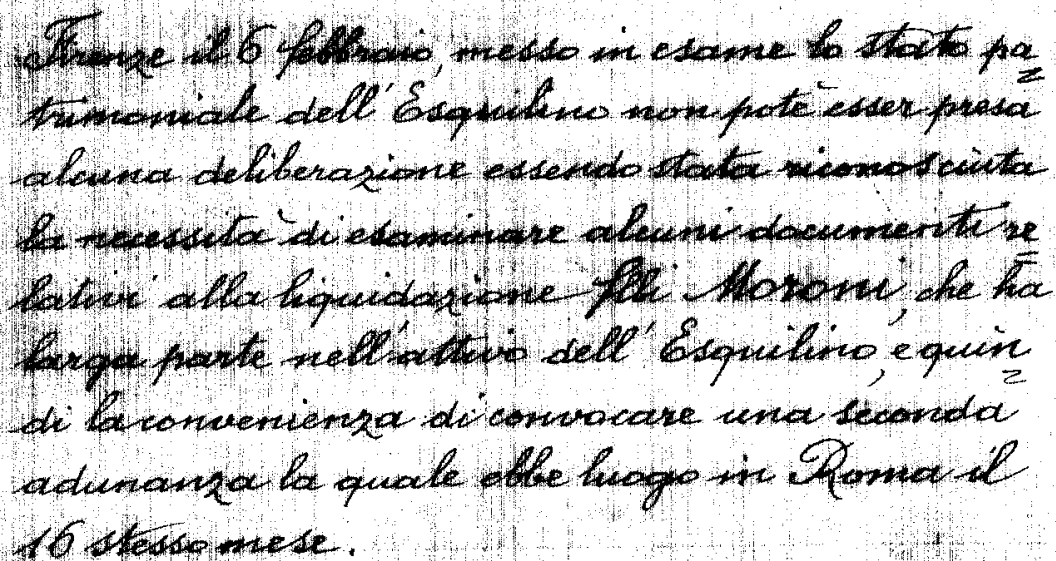 Firenze il 6 febbraio, messo in esame lo stato pa=
trimoniale dell' Esquilino non potè esser presa
alcuna deliberazione essendo stata riconosciuta
la necessità di esaminare alcuni documenti re=
lativi alla liquidazione flli Moroni, che ha
larga parte nell'attivo dell' Esquilino, e quin=
di la convenienza di convocare una seconda
adunanza la quale ebbe luogo in Roma il
16 stesso mese.